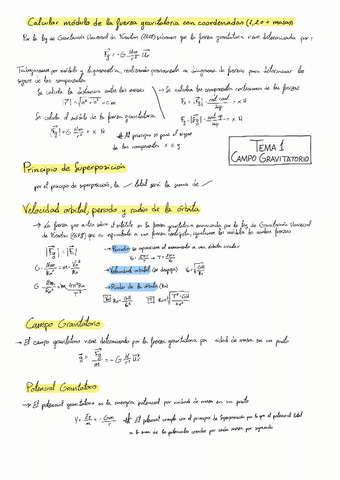 Calcular módulo de la fuerza gravitatoria con coordenadas (1, 2 o + masas)
Por la ley de Gravitación Universal de Newton sabemos que la fuerza gravitatoria viene determinada por:
Fg = -G · Mm/r² · Ur
Trabajaremos por módulo y trigonometría, realizando previamente un diagrama de fuerzas para determinar los
signos de las componentes
Se calcula la distancia entre las masas
Se calcula el módulo de la fuerza gravitatoria
|Fg| = G · Mm/r² = x N
Se calculan las componentes cartesianas de las fuerzas
Fx = |Fg| · = x N
Fy = |Fg| · = x N
Al principio se pone el signo
de las componentes x e y
TEMA 1
CAMPO GRAVITATORIO
Principio de Superposición
por el principio de superposición, la total será la suma de
Velocidad orbital, periodo y radio de la órbita
→ La fuerza que actúa sobre el satélite es la fuerza gravitatoria enunciada por la ley de Gravitación Universal
de Newton que es equivalente a una fuerza centrípeta, igualamos los módulos de ambas fuerzas
|Fg| = |Fc|
→ Periodo: se aproxima el movimiento a una órbita circular
→ Velocidad orbital (se despeja)
→ Radio de la órbita (Ro)
Campo Gravitatorio
→ El campo gravitatorio viene determinado por la fuerza gravitatoria por unidad de masa en un punto
g = Fg/m = -G · M/r² · Ur
Potencial Gravitatorio
→ El potencial gravitatorio es la energía potencial por unidad de masa en un punto
V = Ep/m = -GM/r
El potencial cumple con el principio de superposición por lo que el potencial total
es la suma de los potenciales creados por cada masa por separado